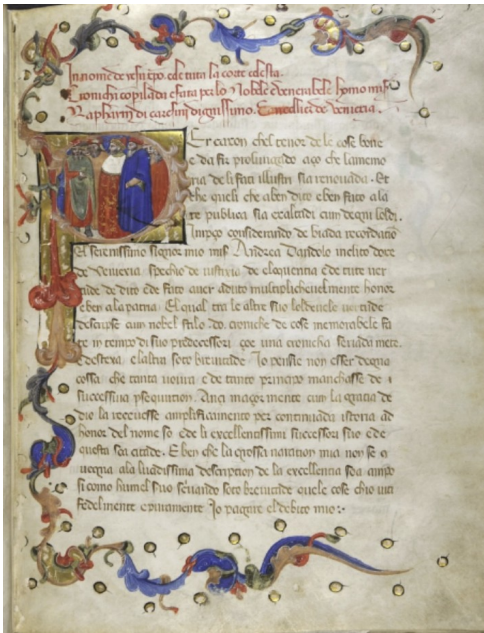 In nome de yesu xpo. ede tuta la corte celesta.
Cronicha copilada e fata per lo Nobele e venerabele homo mis
Raphayn di caresini dignissimo. Cancelier de veniexia.
Er caxon chel tenor de le cose bone
e da fir prolongado aço che la memo
ria de li fati illustri sia renovada. Et
che queli che aben dito e ben fato a la
re publica sia exaltadi cum degni loldi.
Impço considerando de biada recordatio
El serenissimo signor mio mis Andrea Dandolo inclito doxe
de Veniexia spechio de iusticia de eloquentia e de tute ver
tude de dito e de fato aver aduto multiplichevelmente honor
e ben a la patria. El qual tra le altre suo loldevele vertude
descrisse cum nobel stilo do. croniche de cose memorabele fa
te in tempo di suo predecessori çoe una cronicha servada mete.
e destexa. e laltra soto brevitade. Io pensie non esser degna
cossa che tanta vovra e de tanto principo manchasse de
successiva psequition. Ançi maçormente cum la gratia de
dio la recevesse amplificamento per continuada istoria ad
honor del nome so e de li excellentissimi successori suo e de
questa soa citade. E ben che la grossa naration mia non se
uegna a la lucidissima description de la excellentia soa ampo
si como humel suo servando soto brevitade quele cose chio vidi
fedelmente e puramente Io pagare el debito mio:-